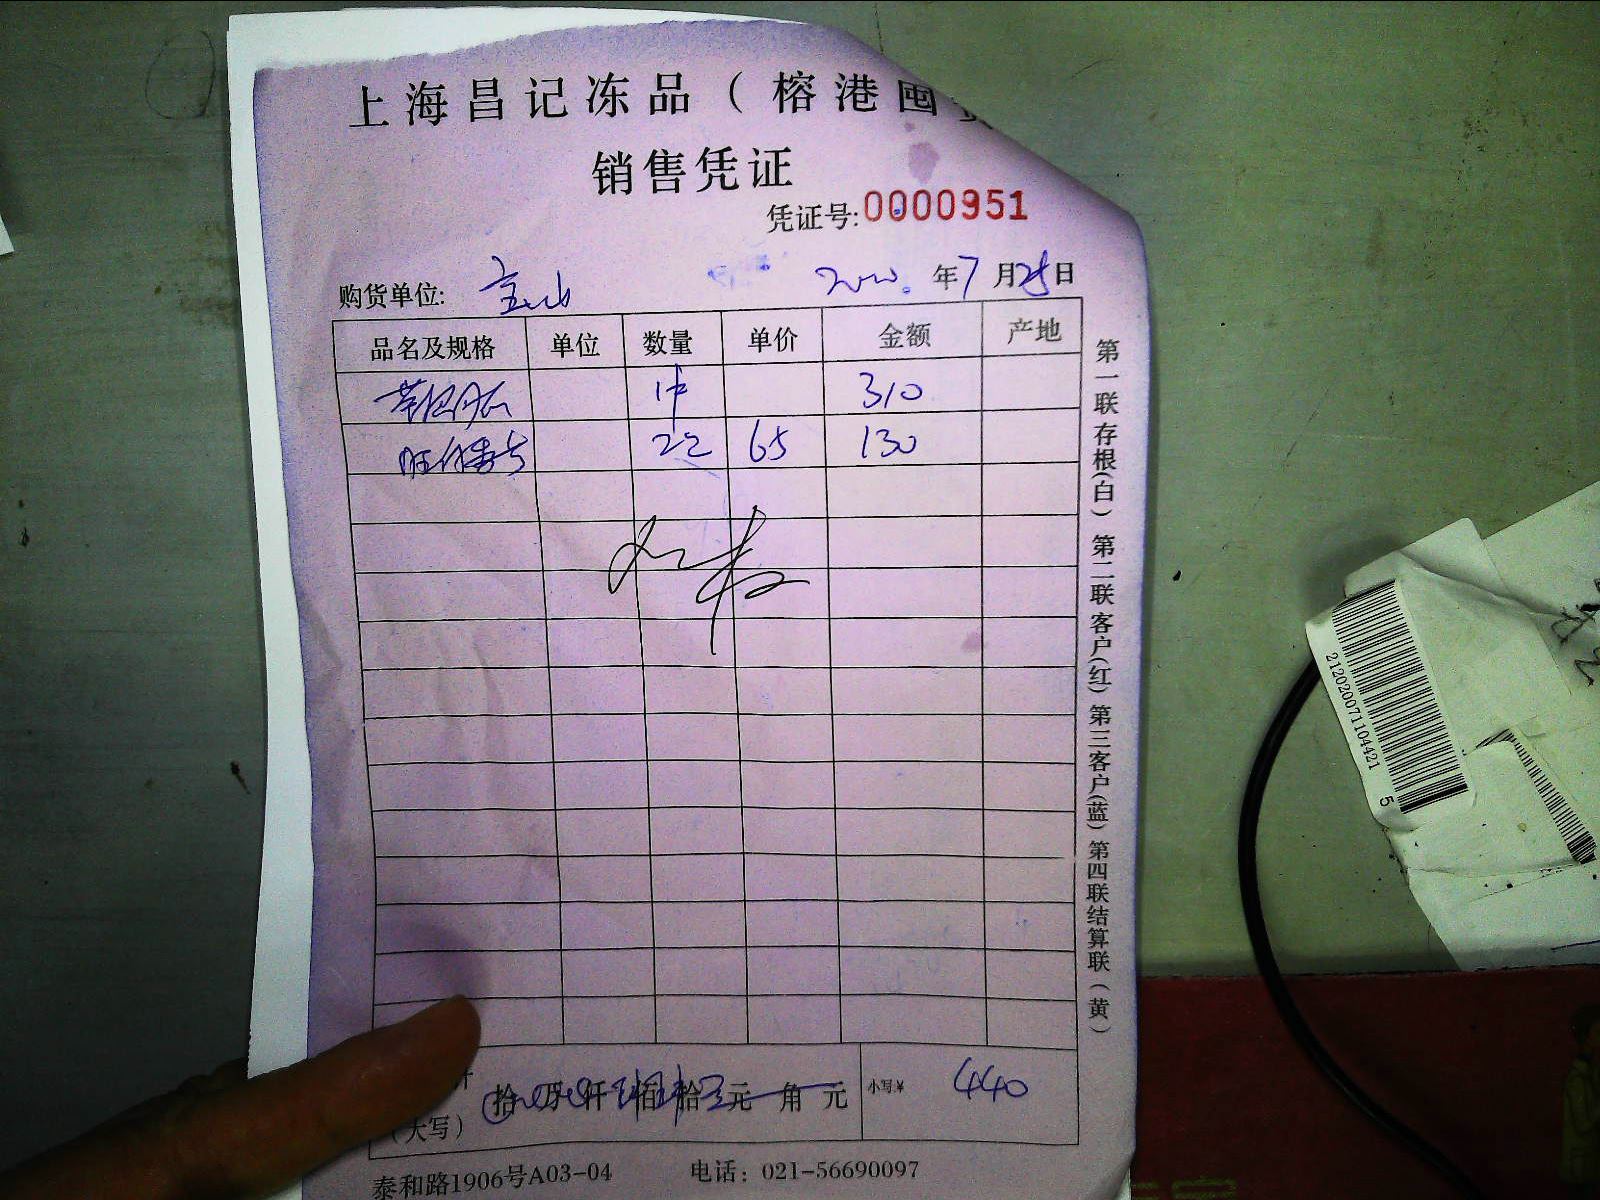 上海昌记冻品（榕港囤货
销售凭证
凭证号:0000951
购货单位: 宝山 2020年7月25日
品名及规格 单位 数量 单价 金额 产地
1件 310
22 65 130
合计（大写） 拾 万 仟 佰 拾 元 角 元 小写¥ 440
泰和路1906号A03-04 电话：021-56690097
第一联存根(白) 第二联客户(红) 第三客户(蓝) 第四联结算联(黄)
2120200711044215